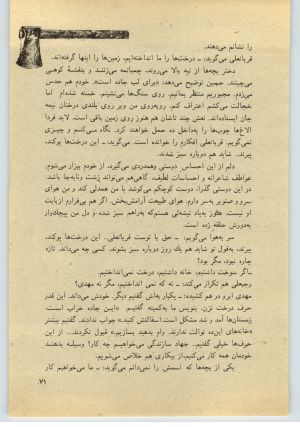 را نشانم می‌دهند.
قربانعلی می‌گوید: ـ درخت‌ها را ما انداخته‌ایم، زمین‌ها را اینها گرفته‌اند.
دختر بچه‌ها از تپه بالا می‌روند، چمباتمه می‌زنند و بنفشهٔ کوهی
می‌چینند. حسین توضیح می‌دهد: «برای لب جاده است». خودم هم حدس
می‌زدم. مجبوریم منتظر بمانیم. روی سنگ‌ها می‌نشینم. خسته شده‌ام اما
خجالت می‌کشم اعتراف کنم. روبه‌روی من ویر روی بلندی درختان نیمه
جان ایستاده‌اند. نعش چند تاشان هم هنوز روی زمین باقی است. لابد فردا
الاغ‌ها چوب‌ها را به‌داخل ده حمل خواهند کرد. نگاه می‌کنم و چیزی
نمی‌گویم. قربانعلی افکارم را خوانده است. می‌گوید: ـ این درخت‌ها پوکند،
پیرند. شاید هم دوباره سبز شدند.
دلم از این احساس دوستی وهمدردی می‌گیرد، از خودم بیزار می‌شوم.
عواطف شاعرانه و احساسات لطیف، گاهی‌هم می‌تواند زشت ونابه‌جا باشد.
در این دوستی گذرا، دوست کوچکم می‌کوشد با من همدلی کند و من هوای
سرو صنوبر به‌سر دارم. هوای طبیعت آرامش‌بخش. اگر هم بی‌قرارم ازبابت
او نیست. هنوز به‌یاد تیشه‌ئی هستم‌که به‌راهم سبز شده و دل من پیچک‌وار
به‌دورش حلقه زده است.
سر به‌هوا می‌گویم: ـ حق با توست قربانعلی.. این درخت‌ها پوکند،
پیرند، به‌قول تو شاید هم یك روز دوباره سبز بشوند. کسی چه می‌داند. تازه
چاره نبود، مگر بود؟
ـ اگر سوخت داشتیم، خانه داشتیم، درخت نمی‌انداختیم.
رجبعلی هم تکرار می‌کند: ـ نه که نمی انداختیم، مگر نه مهدی؟
مهدی ابرو در هم کشیده: ـ یکبار به‌اش گفتیم دیگر. خودش می‌داند. این قدر
حرف درخت نزن. بنویس ما به‌کمیته گفتیم: «ایـن جاده خراب اسـت.
زمستان‌ها آمد و شد مشکل است. اسفالتش کنید.» جواب ندادند. گفتیم بیشتر
«خانه‌های این‌ده توالت ندارند. وام بدهید بسازیم.» قبول نکردند... از این
حرف‌ها خیلی گفتیم. جهاد سازندگی می‌خواهیم چه کار؟ وسیله بدهنـد
خودمان همه کار می‌کنیم. از بیکاری هم خلاص می‌شویم.
یکی از بچه‌ها که اسمش را نمی‌دانم می‌گوید: ـ ما می‌خواهیم کار
۷۱